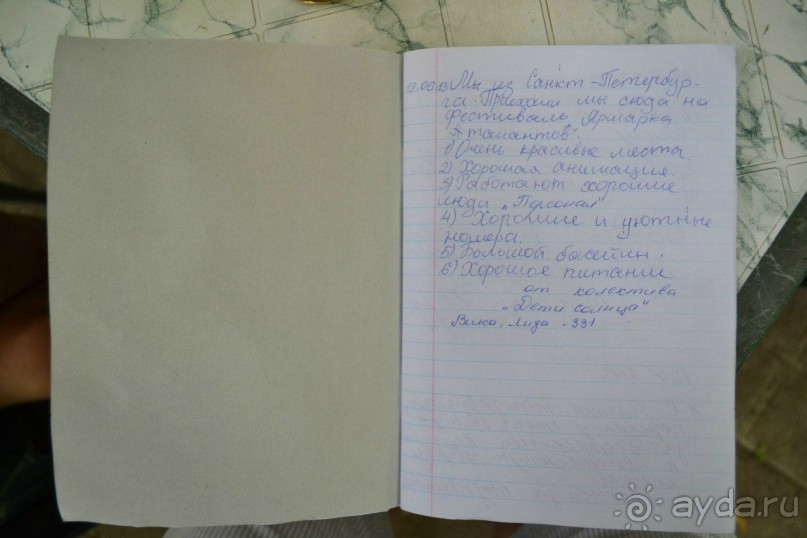 Мы из Санкт-Петербур-
га. Приехали мы сюда на
фестиваль Ярмарка
талантов".
1) Очень красивые места.
2) Хорошая анимация.
3) Работают хорошие
люди „Персонал"
4) Хорошие и уютные
номера.
5) Большой басейин.
6) Хорошое питании
от колектива
„Дети солнца"
Вика, Лида - 331
ayda.ru